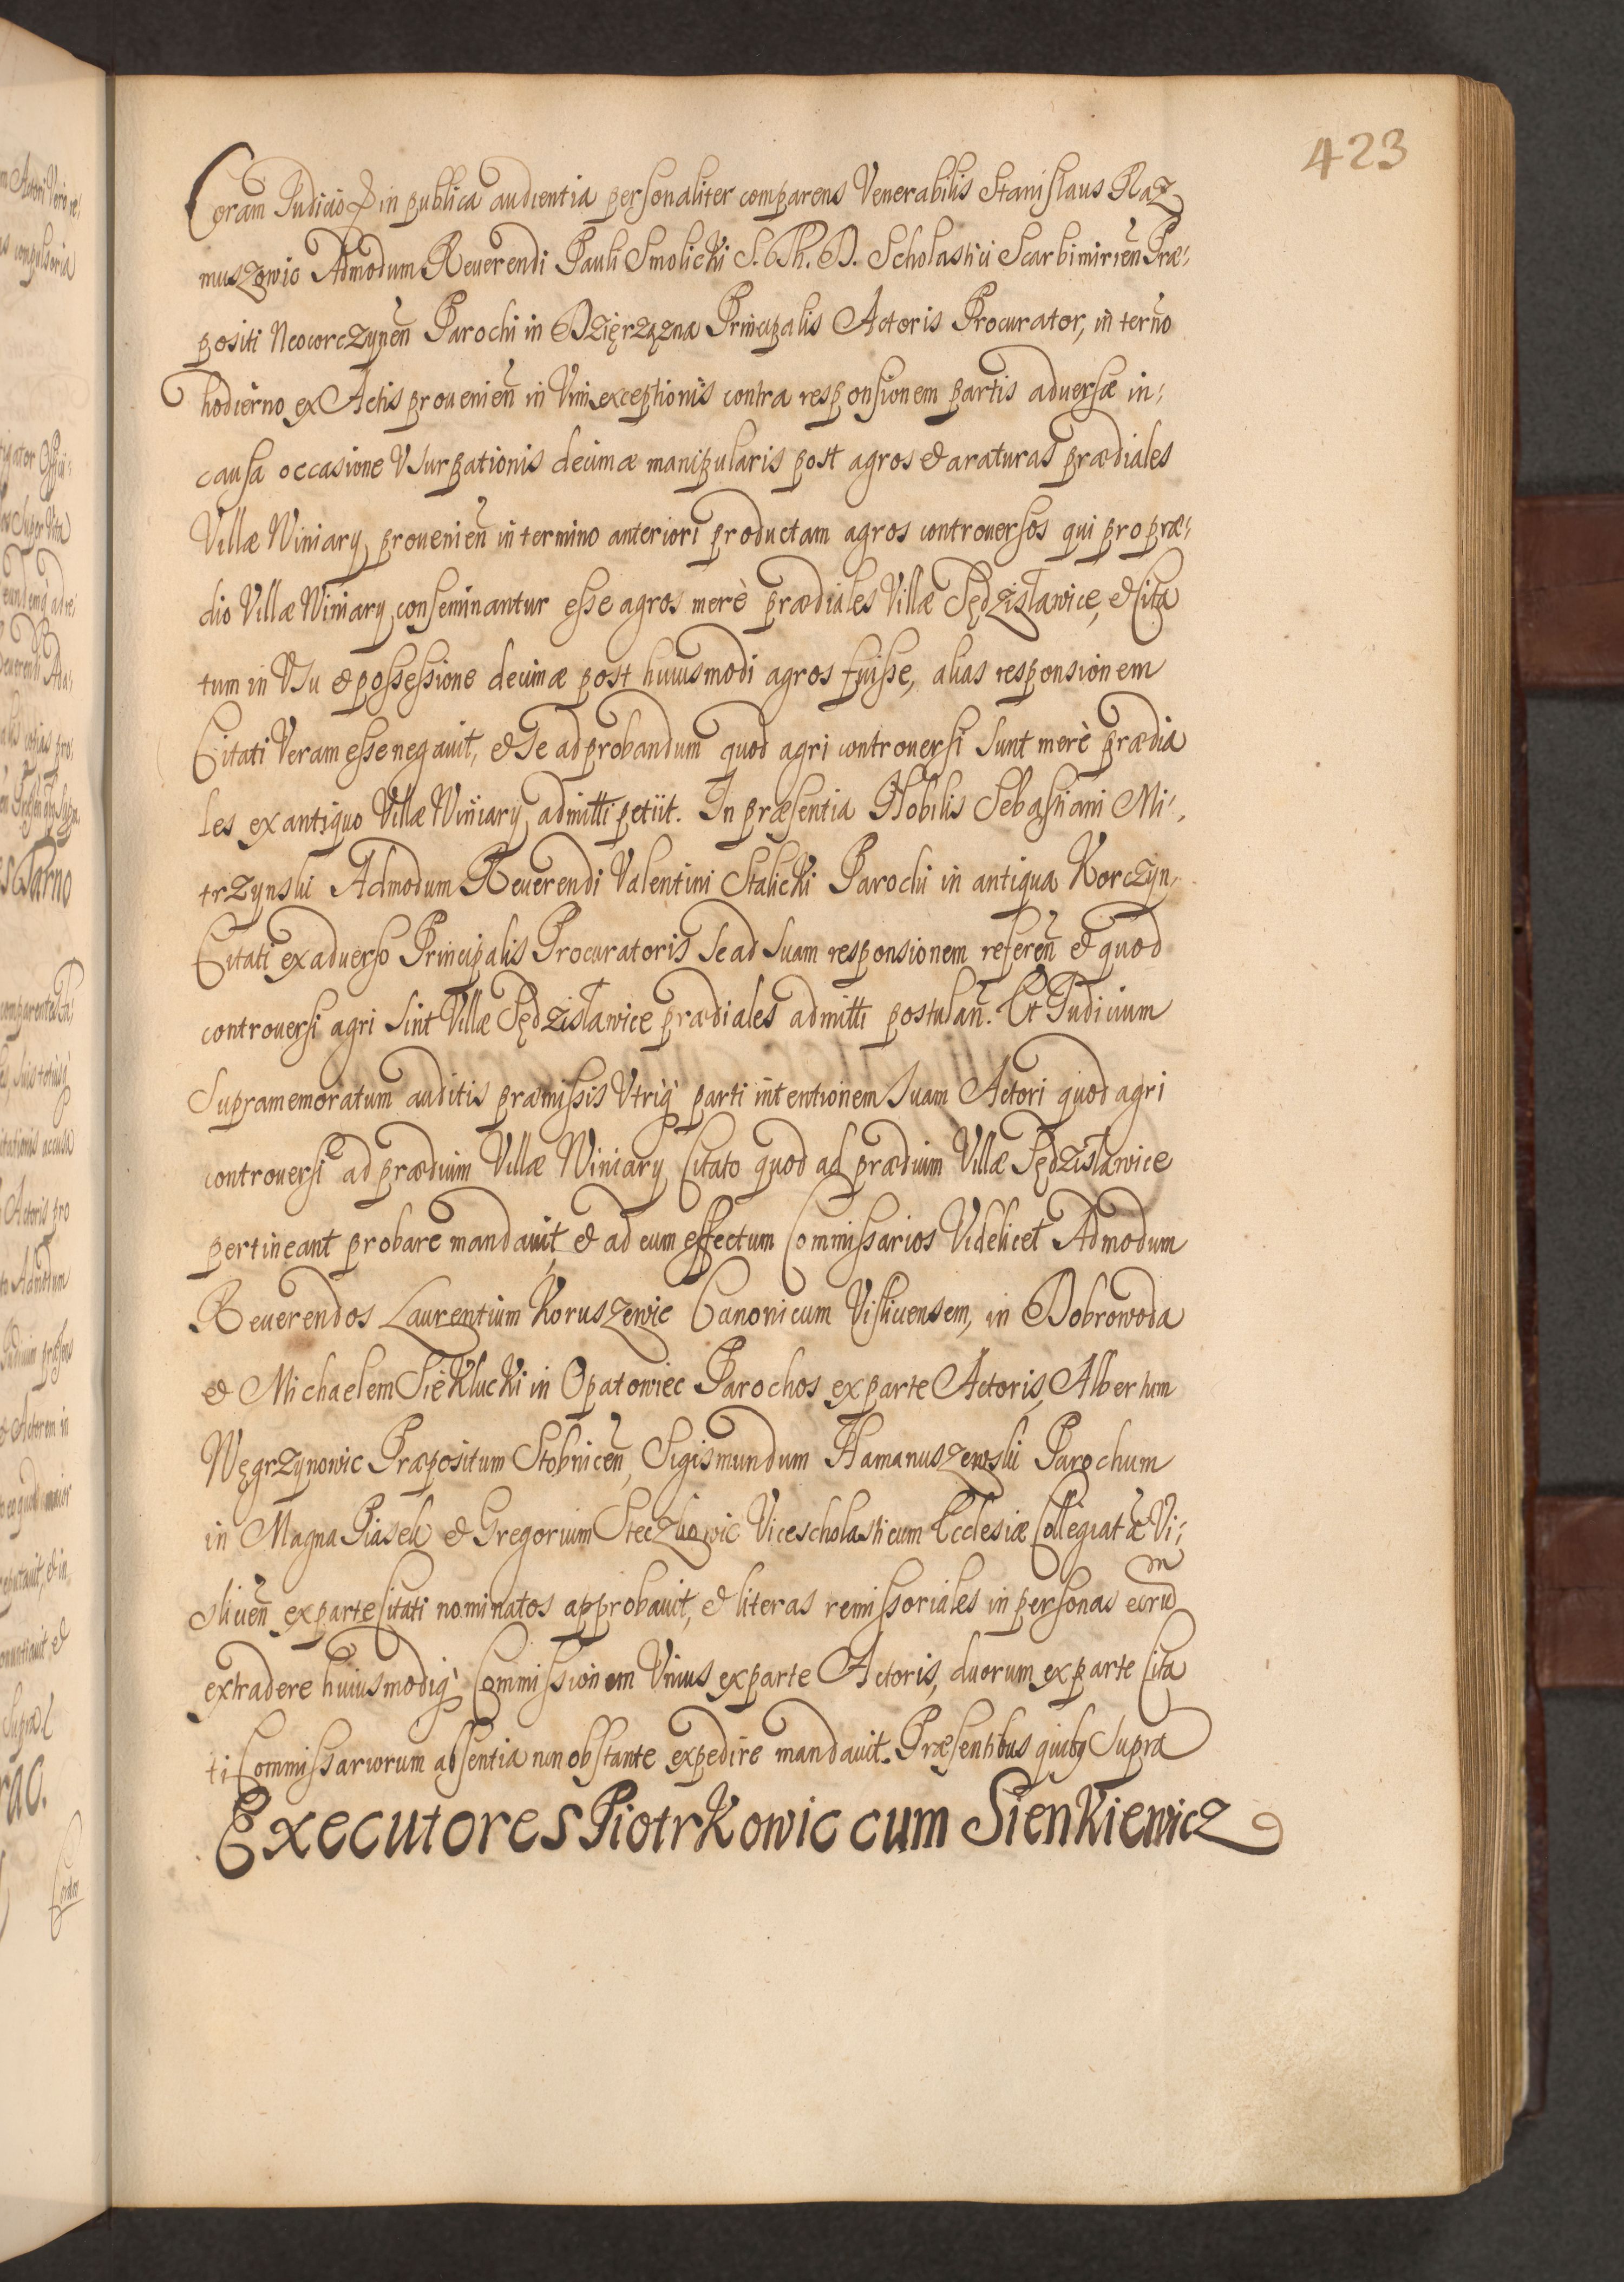 423
Coram Judicio in publica audientia personaliter comparens Venerabilis Stanislaus Raz
muszowic Admodum Reuerendi Pauli Smolicki S. Th. D. Scholastici Scarbimirien Præ-
positi Neocorczynen Parochi in Dzierzązna Principalis Actoris Procurator, in terno
hodierno ex Actis prouenien in Vim exceptionis contra responsionem partis aduersæ in-
causa occasione Vsurpationis decimæ manipularis post agros & araturas prædiales
Villæ Winiary prouenien in termino anteriori productam agros controuersos qui pro præ-
dio Villæ Winiary conseminantur esse agros merè prædiales Villæ Sędzisławice, & Cita
tum in Vsu & possessione decimæ post huiusmodi agros fuisse, alias responsionem
Citati Veram esse negauit, & Se ad probandum quod agri controuersi sunt merè prædia
les ex antiquo Villæ Winiary admitti petiit. In præsentia Nobilis Sebastiani Mi-
trzynski Admodum Reuerendi Valentini Stalicki Parochi in antiqua Korczyn
Citati ex aduerso Principalis Procuratoris Se ad Suam responsionem referen & quod
controuersi agri Sint Villæ Sędzisławice prædiales admitti postulan. Et Judicium
Supramemoratum auditis præmissis Vtriq parti intentionem Suam Actori quod agri
controuersi ad prædium Villæ Winiary Citato quod ad prædium Villæ Sędzisławice
pertineant probare mandauit, & ad eum effectum Commissarios Videlicet Admodum
Reuerendos Laurentium Koruszewic Canonicum Visliciensem, in Dobrowoda
& Michaelem Sieklucki in Opatowiec Parochos ex parte Actoris, Albertum
Węgrzynowic Præpositum Stobnicen, Sigismundum Hamanuszewski Parochum
in Magna Piasek & Gregorium Steczkowic Vicescholasticum Ecclesiæ Collegiatæ Vi-
slicien ex parte Citati nominatos approbauit, & literas remissoriales in personas eorum
extradere huiusmodiq Commissionem Vnius ex parte Actoris, duorum ex parte Cita
ti Commissariorum absentia non obstante expedire mandauit. Præsentibus quibus Supra
Executores Piotrkowic cum Sienkiewicz